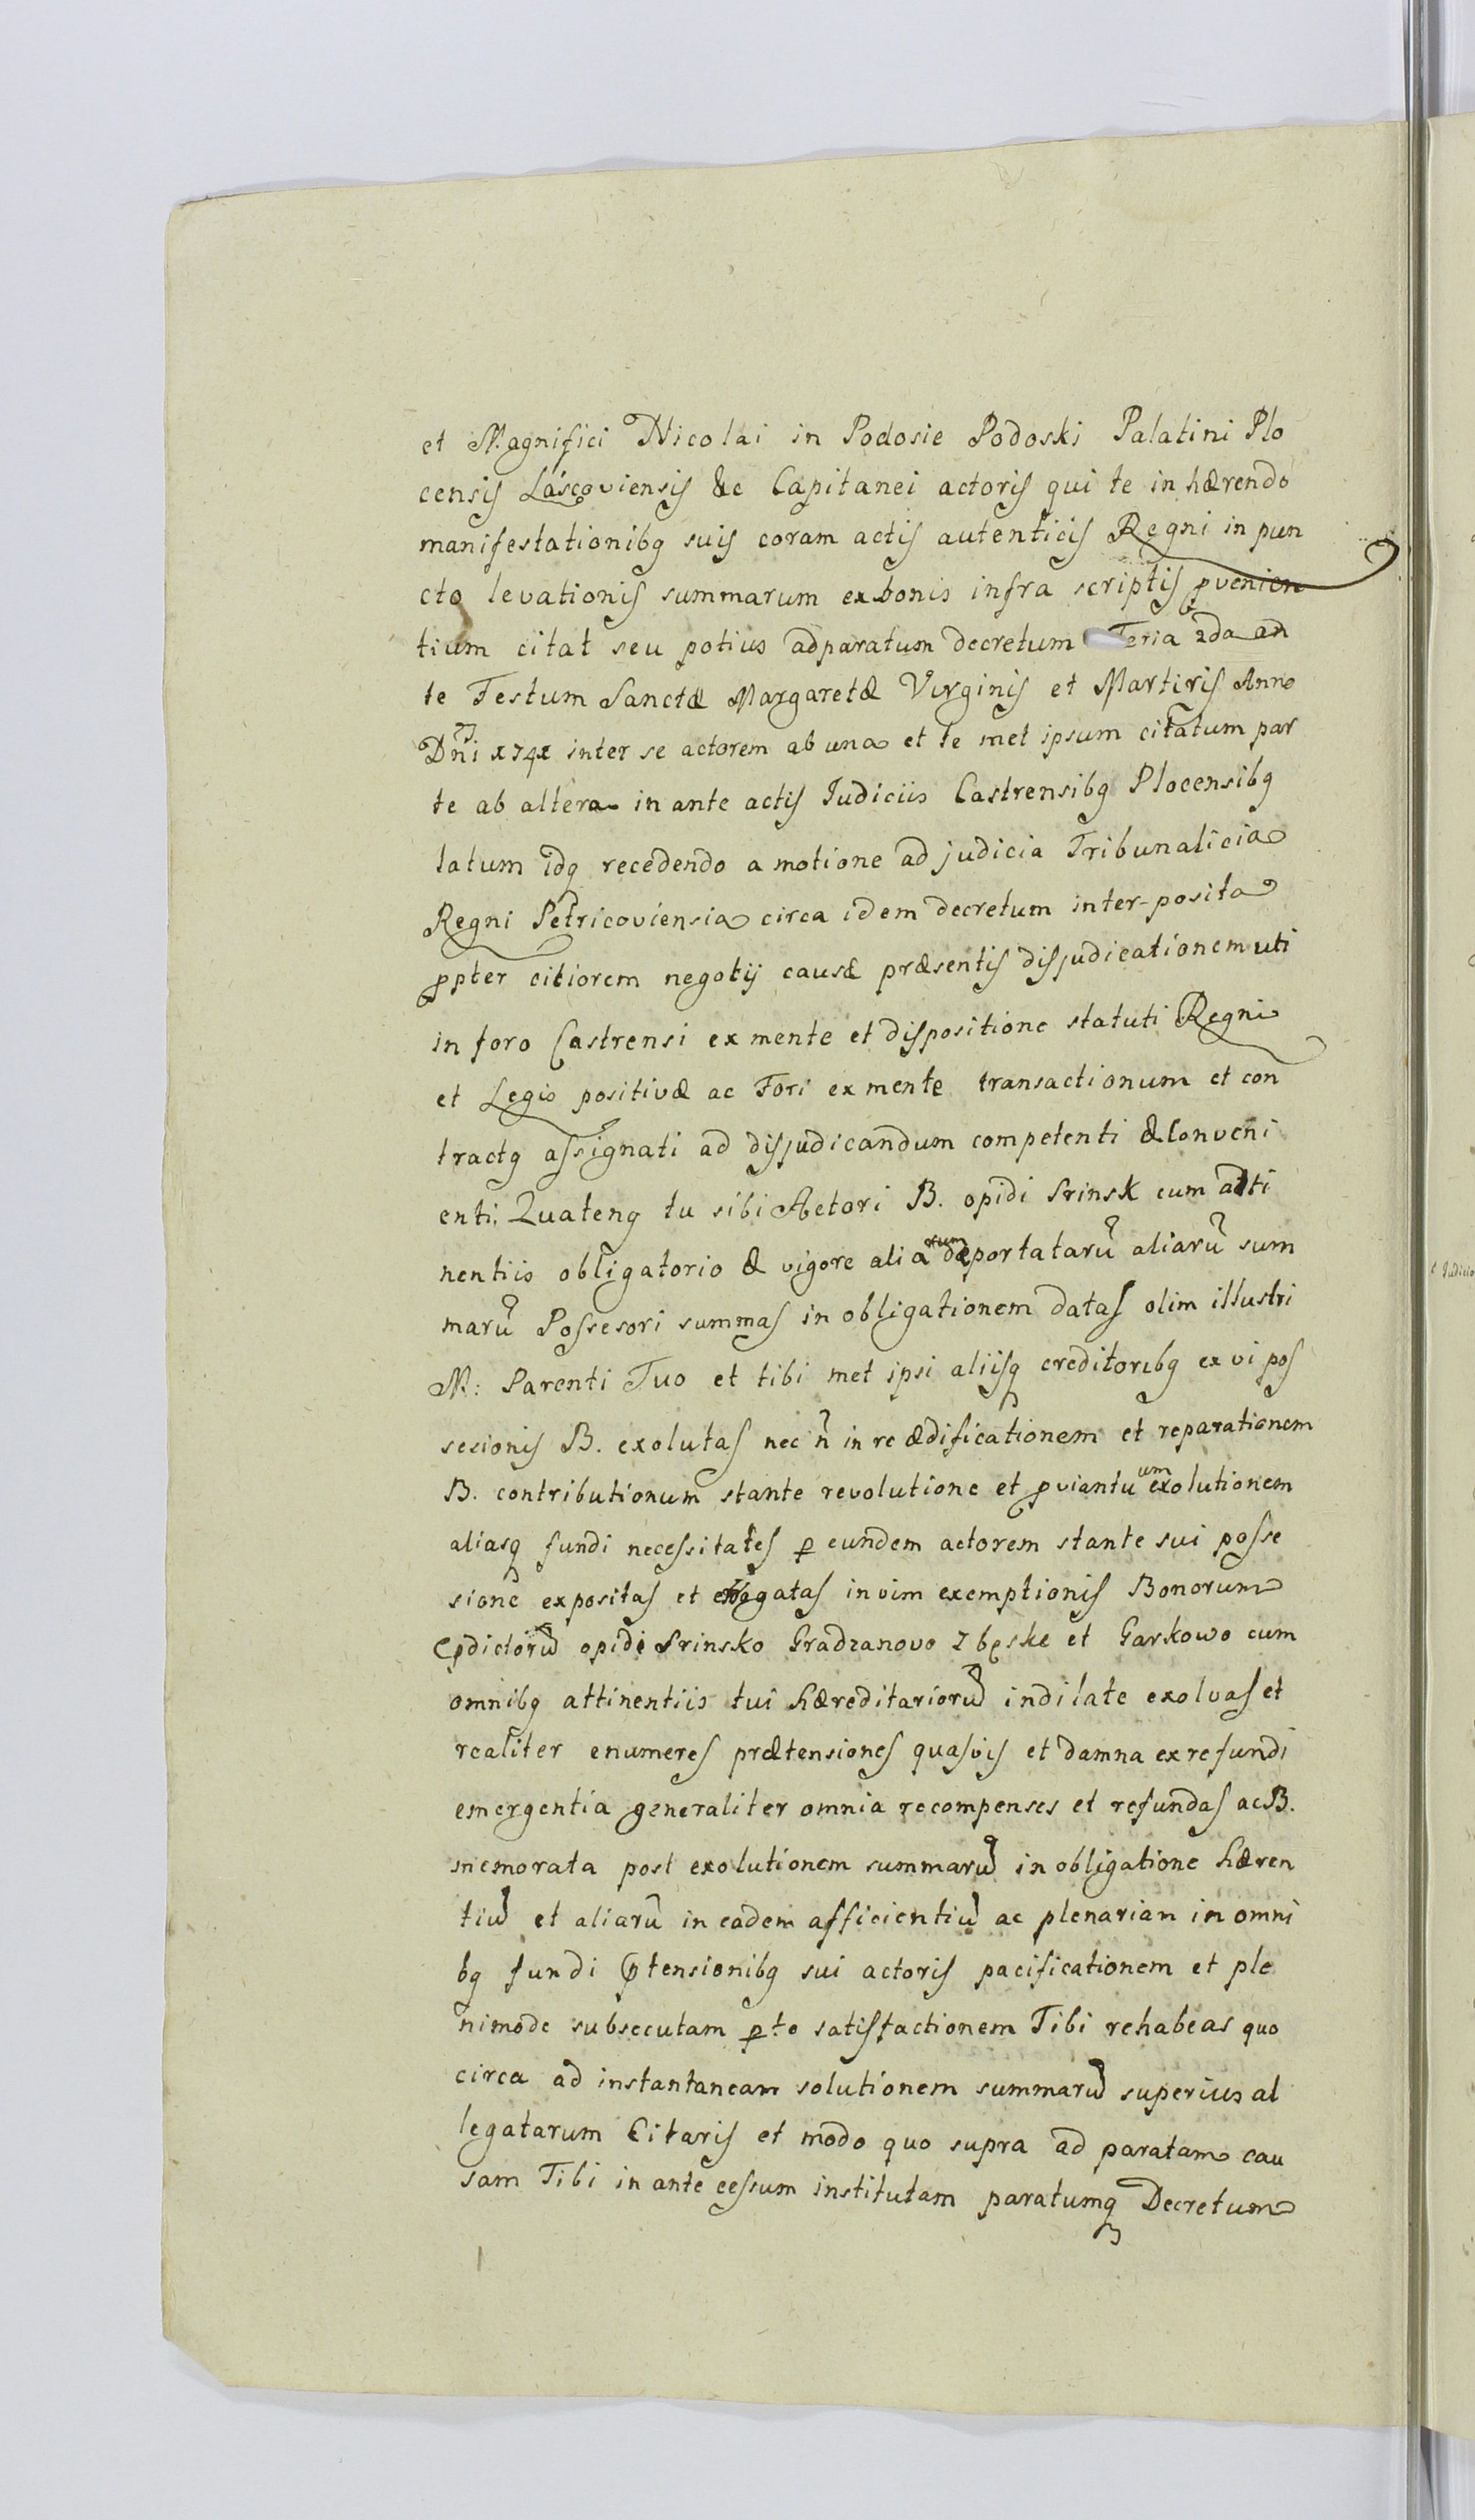 et Magnifici Nicolai in Podosie Podoski Palatini Plo
censis Láscoviensis &c Capitanei actoris qui te in hærendo
manifestationibq suis coram actis autenticis Regni in pun
cto levationis summarum ex bonis infra scriptis pvenien
tium citat seu potius adparatum decretum Feria 2da an
te Festum Sanctæ Margaretæ Virginis et Martiris Anno
Dni 1741 inter se actorem ab una et te met ipsum citatum par
te ab altera in ante actis Iudiciis Castrensibq Plocensibq
latum idq recedendo a motione ad judicia Tribunalicia
Regni Petricoviensia circa idem decretum inter-posita
ppter citiorem negotij causæ præsentis disjudicationem uti
in foro Castrensi ex mente et dispositione statuti Regni
et Legis positivæ ac Fori ex mente transactionum et con
tractq assignati ad disjudicandum competenti & Conveni
enti; Quatenq tu sibi Actori B. opidi Srinsk cum atti
nentiis obligatorio & vigore aliarum deportatarũ aliarũ sum
marũ Possesori summas in obligationem datas olim illustri
M: Parenti Tuo et tibi met ipsi aliisq creditoribq ex vi pos
sesionis B. exolutas nec ñ in re ædificationem et reparationem
B. contributionum stante revolutione et pviantuum exolutionem
aliasq fundi necessitates p eundem actorem stante sui posse
sione expositas et erogatas in vim exemptionis Bonorum
pdictorũ opidi Srinsko Gradzanovo Zbęske et Garkowo cum
omnibq attinentiis tui hæreditariorũ indilate exolvas et
realiter enumeres prætensiones quasvis et damna ex refundi
emergentia generaliter omnia recompenses et refundas ac B.
memorata post exolutionem summarũ in obligatione hæren
tiũ et aliarũ in eadem afficientiũ ac plenariam in omni
bq fundi ptensionibq sui actoris pacificationem et ple
nimode subsecutam p te satisfactionem Tibi rehabeas quo
circa ad instantaneam solutionem summarũ superius al
legatarum Citaris et modo quo supra ad paratam cau
sam Tibi in ante cessum institutam paratumq Decretum